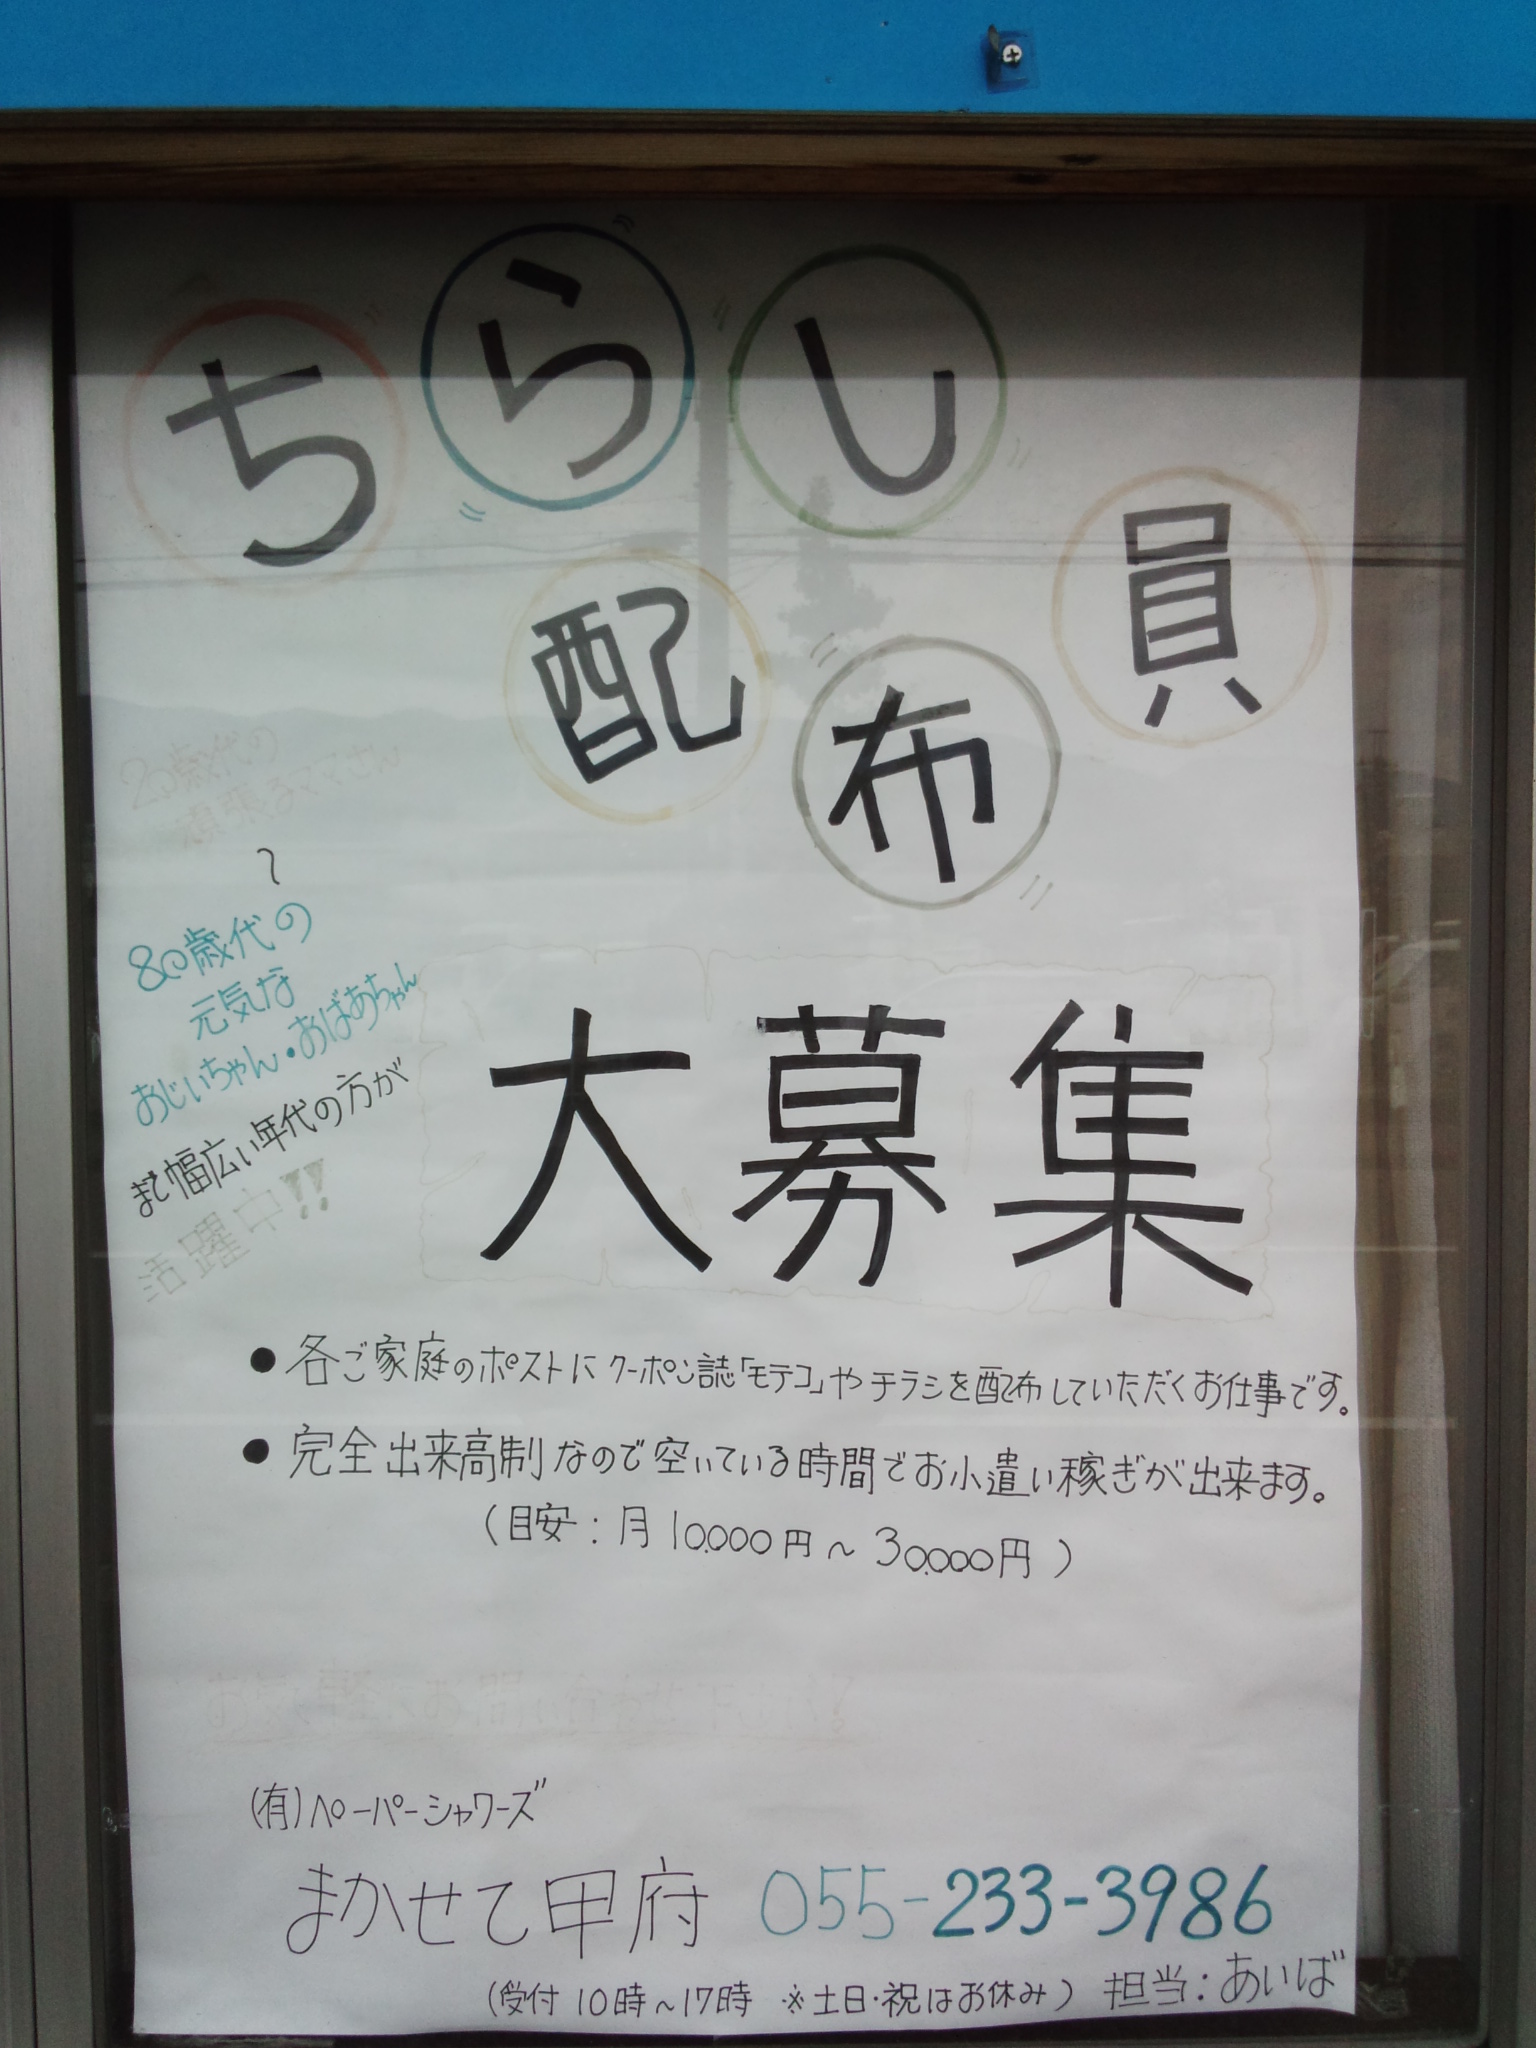 ちらし
配布員
20歳代の
頑張るママさん
〜
80歳代の
元気な
おじいちゃん・おばあちゃん
まで幅広い年代の方が
活躍中!!
大募集
●各ご家庭のポストにクーポン誌「モテコ」やチラシを配布していただくお仕事です。
●完全出来高制なので空いている時間でお小遣い稼ぎが出来ます。
(目安:月10,000円〜30,000円)
お気軽にお問い合わせ下さい!
(有)ペーパーシャワーズ
まかせて甲府 055-233-3986
(受付10時〜17時 ※土日・祝はお休み) 担当:あいば